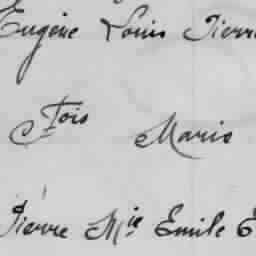 Eugène Louis Pierre
Fois Marie
Pierre Mie Emile E